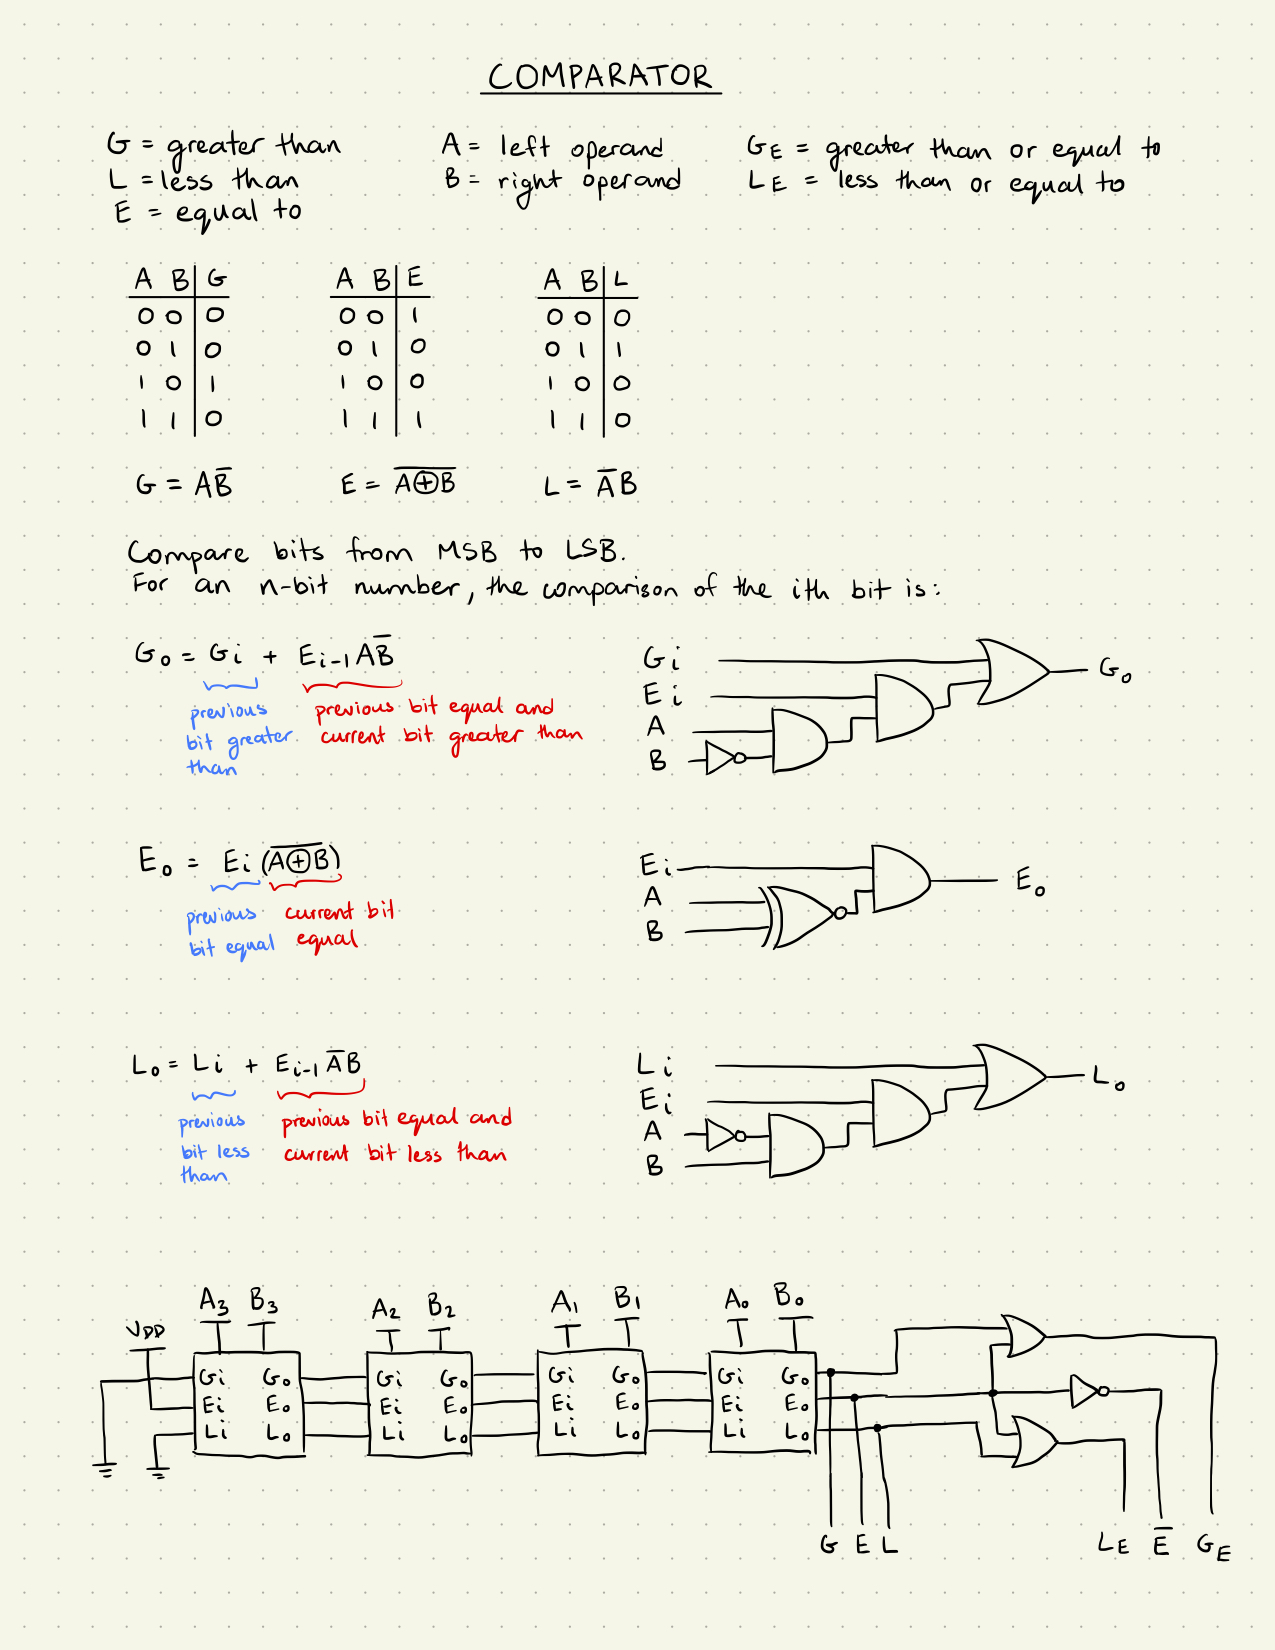 COMPARATOR
G = greater than
L = less than
E = equal to
A = left operand
B = right operand
GE = greater than or equal to
LE = less than or equal to
A B G
0 0 0
0 1 0
1 0 1
1 1 0
A B E
0 0 1
0 1 0
1 0 0
1 1 1
A B L
0 0 0
0 1 1
1 0 0
1 1 0
G = AB̅
E = A̅⊕̅B̅
L = A̅B
Compare bits from MSB to LSB.
For an n-bit number, the comparison of the ith bit is:
Go = Gi + Ei-1 AB̅
previous
bit greater
than
previous bit equal and
current bit greater than
Gi
Ei
A
B
Go
Eo = Ei (A̅⊕̅B̅)
previous
bit equal
current bit
equal
Ei
A
B
Eo
Lo = Li + Ei-1 A̅B
previous
bit less
than
previous bit equal and
current bit less than
Li
Ei
A
B
Lo
VDD
A3 B3
A2 B2
A1 B1
A0 B0
Gi Go
Ei Eo
Li Lo
Gi Go
Ei Eo
Li Lo
Gi Go
Ei Eo
Li Lo
Gi Go
Ei Eo
Li Lo
G E L
LE E̅ GE